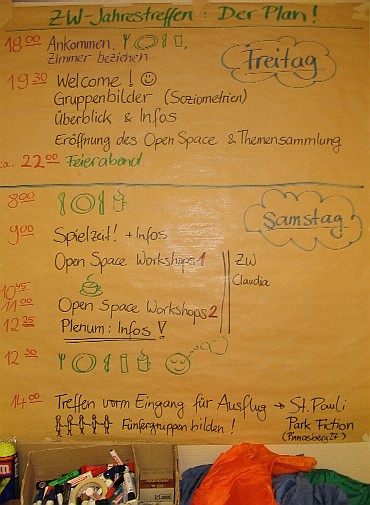 ZW-Jahrestreffen: Der Plan!
Freitag
18 00 Ankommen,
Zimmer beziehen
19 30 Welcome!
Gruppenbilder (Soziometrien)
Überblick & Infos
Eröffnung des Open Space & Themensammlung
ca. 22 00 Feierabend
Samstag
8 00
9 00 Spielzeit! + Infos
Open Space Workshops 1
ZW
Claudia
10 45
11 00 Open Space Workshops 2
12 25 Plenum: Infos!
12 30
14 00 Treffen vorm Eingang für Ausflug → St. Pauli
Park Fiction
Fünfergruppen bilden!